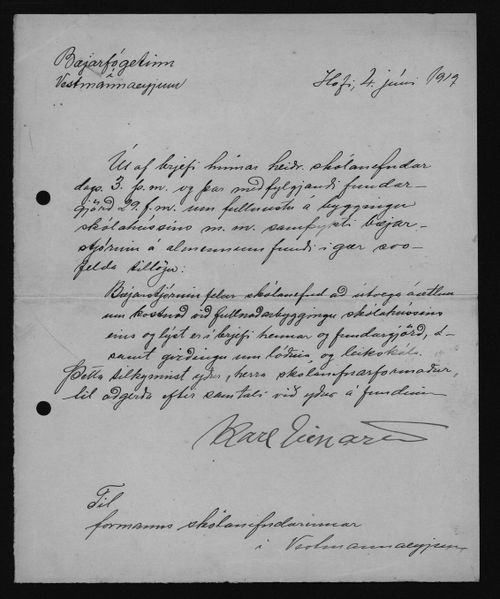 Bæjarfógetinn
í
Vestmannaeyjum
Hofi, 4. júní 1919
Út af brjefi hinnar heiðr. skólanefndar
dags. 3. þ.m. og þar meðfylgjandi fundar-
gjörð 29. f.m. um fullnustu á byggingu
skólahússins m.m. samþykti bæjar-
stjórnin á almennum fundi í gær svo-
felda tillögu:
Bæjarstjórnin felur skólanefnd að útvega áætlun
um kostnað við fullnaðarbyggingu skólahússins
eins og lýst er í brjefi hennar og fundargjörð, á-
samt girðingu um lóðina, og leikskála.
Þetta tilkynnist yður, herra skólanefndarformaður,
til aðgerða eftir samtali við yður á fundinum
Karl Einarsson
Til
formanns skólanefndarinnar
í Vestmannaeyjum